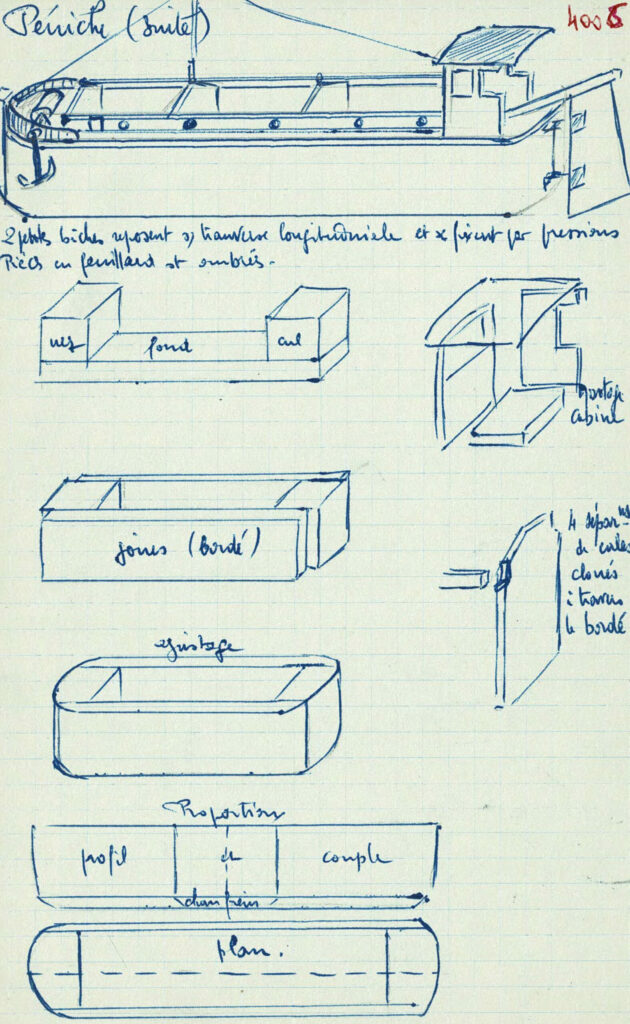 Péniche (Suite)
4005
2 petites bâches reposent s/ traverse longitudinale et se fixent par pressions
Pièces en feuillard et
nez
fond
cul
Montage
cabine
joues (bordé)
4 sépar
de cales
cloués
à travers
le bordé
Ajustage
Proportions
profil
et
couple
chanfrein
plan.